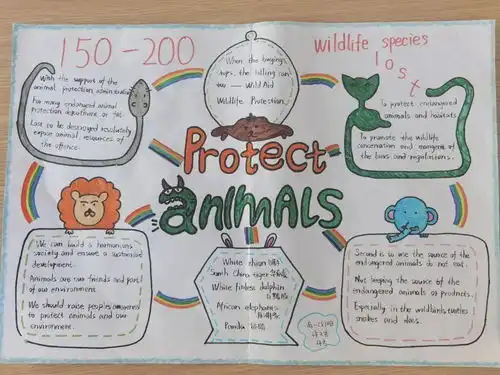 150-200
wildlife species
lost
With the support of the
animal protection administration
For many endangered animal
protection
Last to be destroyed resolutely
expose animal resources of
the offence.
When the buying
stops, the killing can
too — Wild Aid
Wildlife Protection.
To protect endangered
animals and habitats
To promote the wildlife
conservation and
the laws and regulations.
Protect
ANIMALS
We can build a harmonious
society and ensure a sustained
development.
Animals are our friends and part
of our environment.
We should raise peoples
to protect animals and our
environment.
White rhion
South China tiger
White finless dolphin
African elephants
Panda 熊猫
Second is so use the source of the
endangered animals do not eat.
Not keeping the source of the
endangered animals or products.
Especially in the wildbirds turtles
snakes and